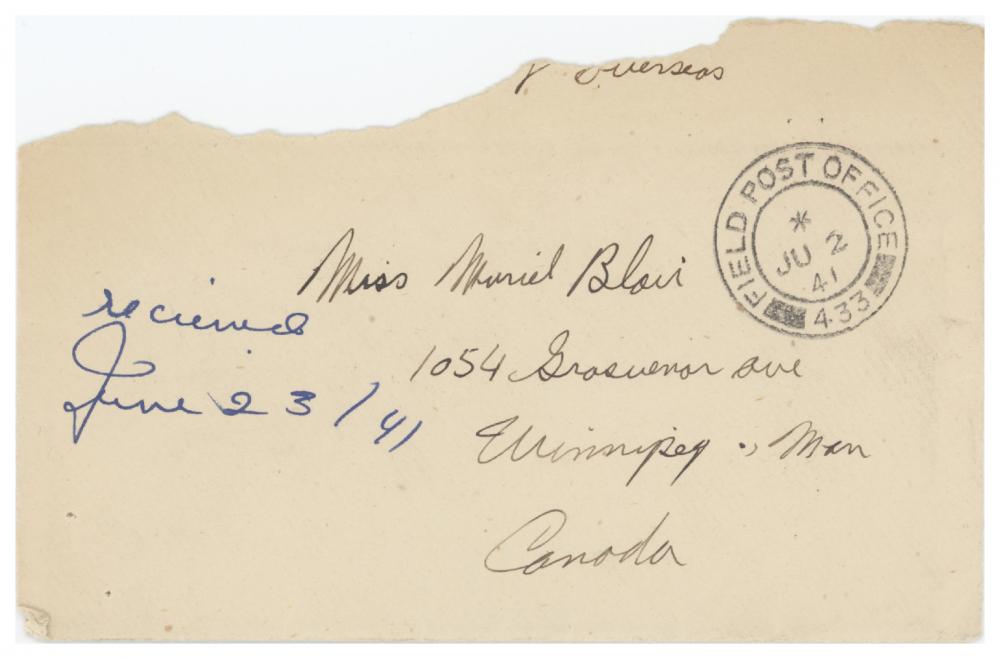 Overseas
FIELD POST OFFICE
*
JU 2
41
433
Miss Muriel Blair
recieved
June 23/41
1054 Grosvenor ave
Winnipeg ., Man
Canada